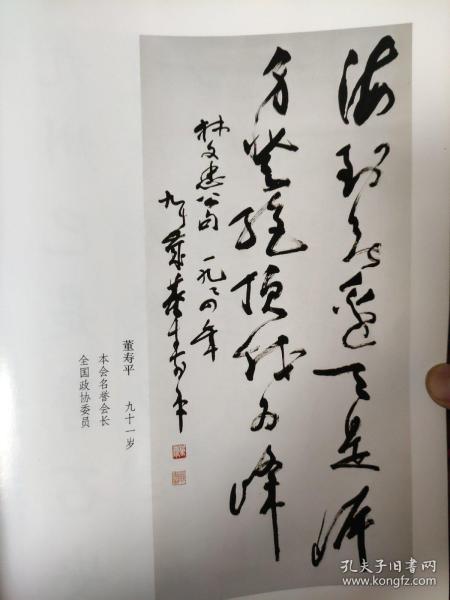 海到无邊天是岸
山登绝顶我为峰
林文忠公句 一九九四年
董寿平 九十一岁
本会名誉会长
全国政协委员
孔夫子旧书网
www.kongfz.com